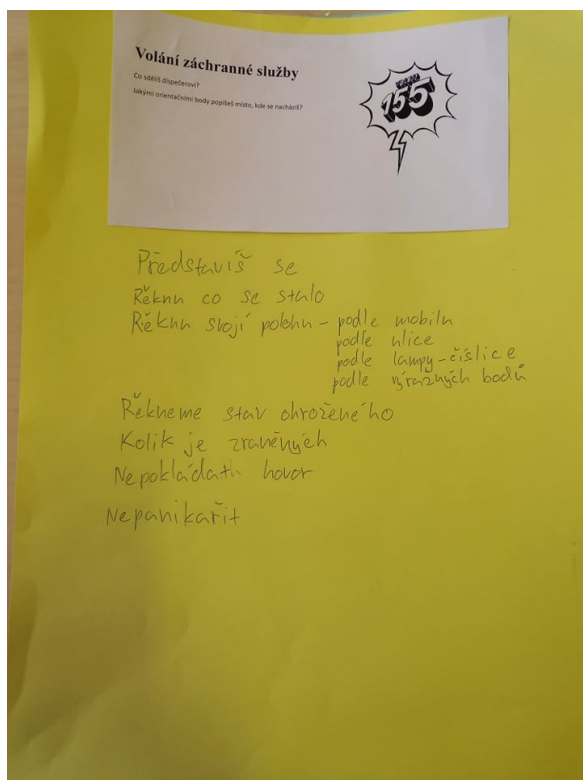 Volání záchranné služby
Co sdělíš dispečerovi?
Jakými orientačními body popíšeš místo, kde se nacházíš?
155
Představiš se
Řěknu co se stalo
Řěknu svojí polohu - podle mobilu
podle ulice
podle lampy - číslice
podle výrazných bodů
Řěkneme stav ohroženého
Kolik je zraněných
Nepokládat hovor
Nepanikařit